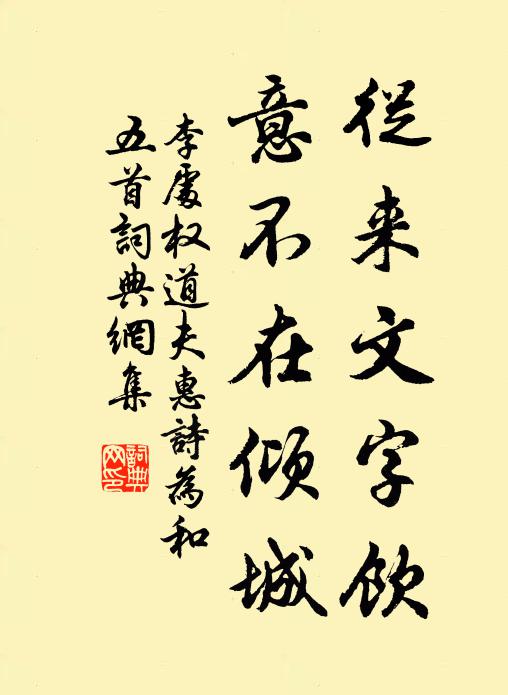 從来文字飲
意不在傾城
李處权道夫惠詩為和
五首詞典網集
詞典
网印